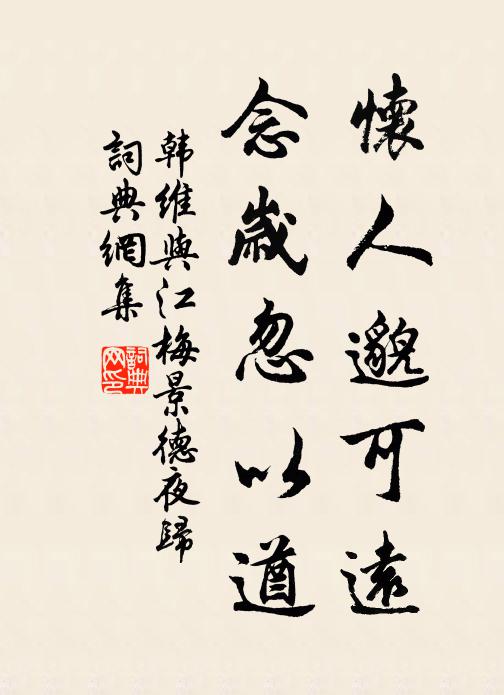 懷人邈可遠
念歲忽以遒
韩維與江梅景德夜歸
詞典網集
詞典网印